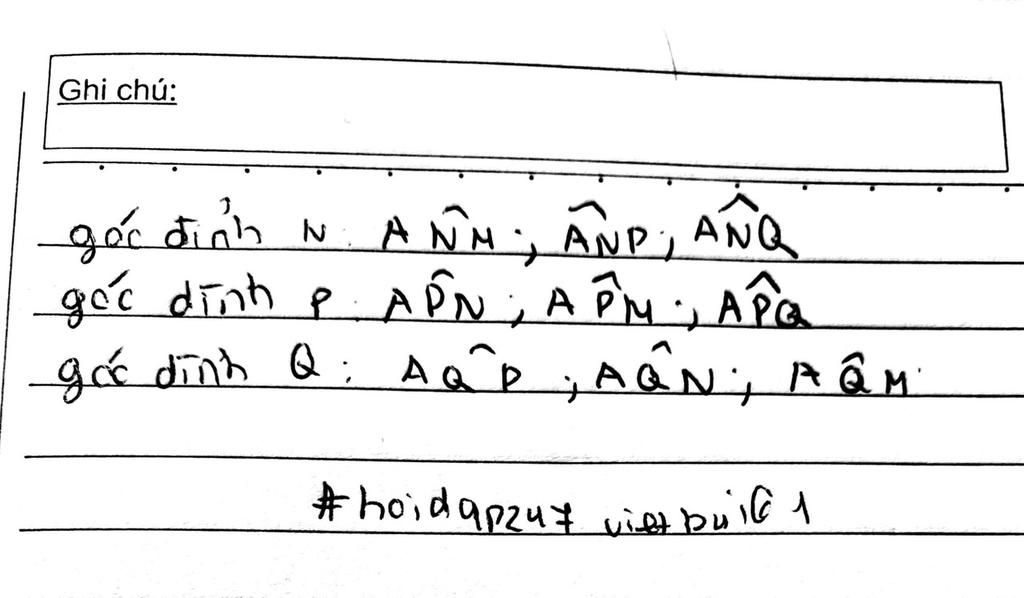 Ghi chú:
góc đỉnh N: AN̂M; AN̂P; AN̂Q
góc đỉnh P: AP̂N; AP̂M; AP̂Q
góc đỉnh Q: AQ̂P; AQ̂N; AQ̂M
#hoidap247